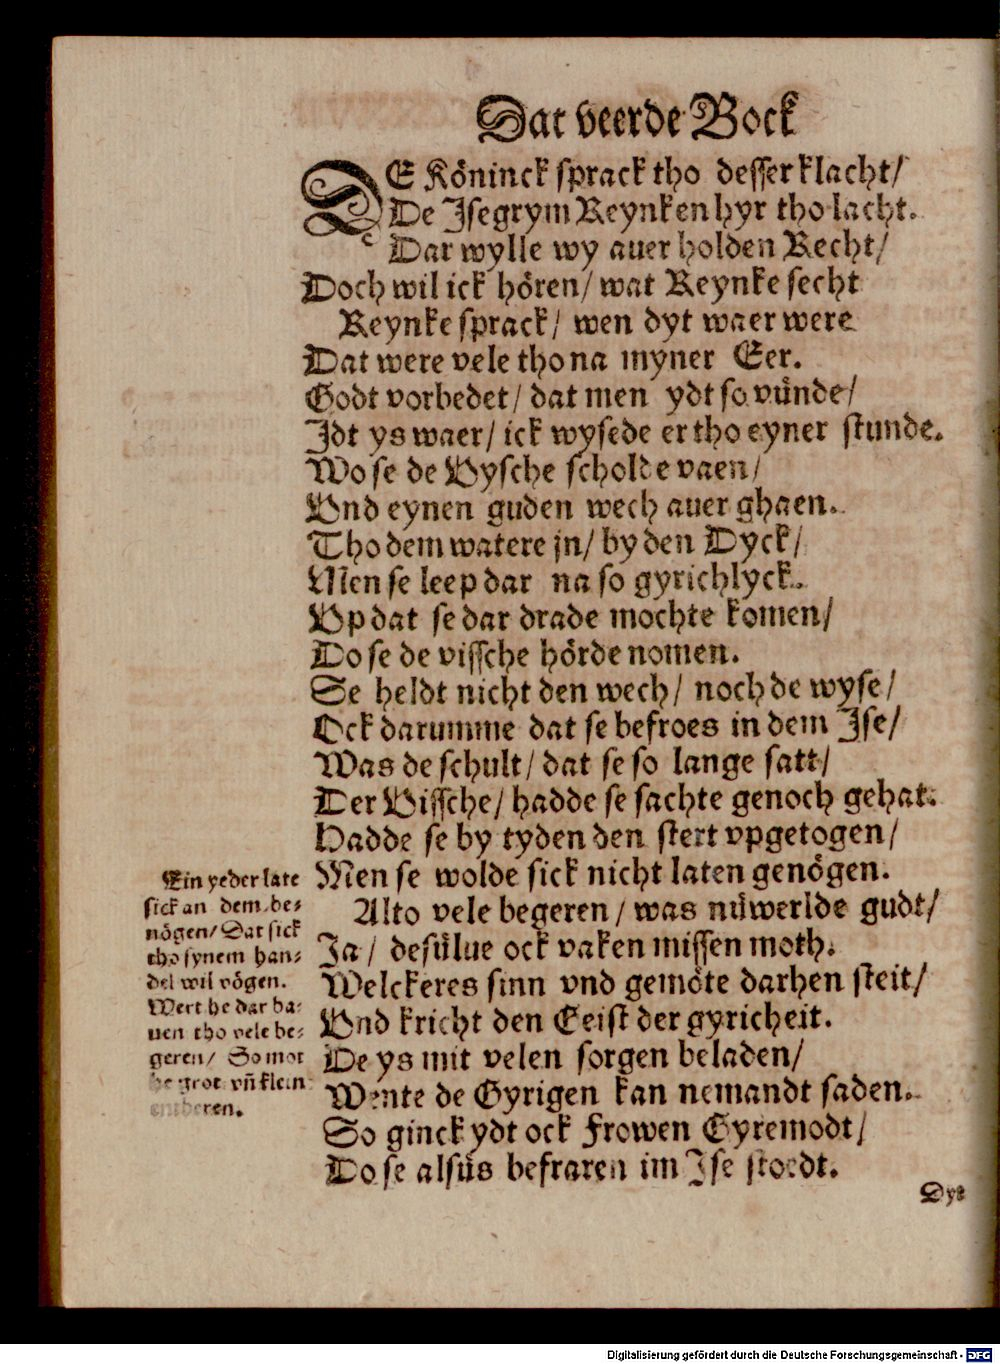 Dat veerde Bock
DE Köninck sprack tho desser klacht/
De Jsegrym Reynken hyr tho lacht.
Dar wylle wy auer holden Recht/
Doch wil ick hören/ wat Reynke secht
Reynke sprack/ wen dyt waer were
Dat were vele tho na myner Eer.
Godt vorbedet/ dat men ydt so vünde/
Jdt ys waer/ ick wysede er tho eyner stunde.
Wo se de Vysche scholde vaen/
Vnd eynen guden wech auer ghaen.
Tho dem watere jn/ by den Dyck/
Men se leep dar na so gyrichlyck.
Vp dat se dar drade mochte komen/
Do se de vissche hörde nomen.
Se heldt nicht den wech/ noch de wyse/
Ock darumme dat se befroes in dem Jse/
Was de schult/ dat se so lange satt/
Der Vissche/ hadde se sachte genoch gehat.
Hadde se by tyden den stert vpgetogen/
Men se wolde sick nicht laten genögen.
Alto vele begeren/ was nüwerlde gudt/
Ja/ desülue ock vaken missen moth.
Welckeres sinn vnd gemöte darhen steit/
Vnd kricht den Geist der gyricheit.
De ys mit velen sorgen beladen/
Wente de Gyrigen kan nemandt saden.
So ginck ydt ock Frowen Gyremodt/
Do se alsüs befraren im Jse stoedt.
Dyt
Ein yeder late
sick an dem be-
nögen/ Dat sick
tho synem han-
del wil vögen.
Wert he dar ba-
uen tho vele be-
geren/ So mot
he grot vñ klein
entberen.
Digitalisierung gefördert durch die Deutsche Forschungsgemeinschaft - DFG